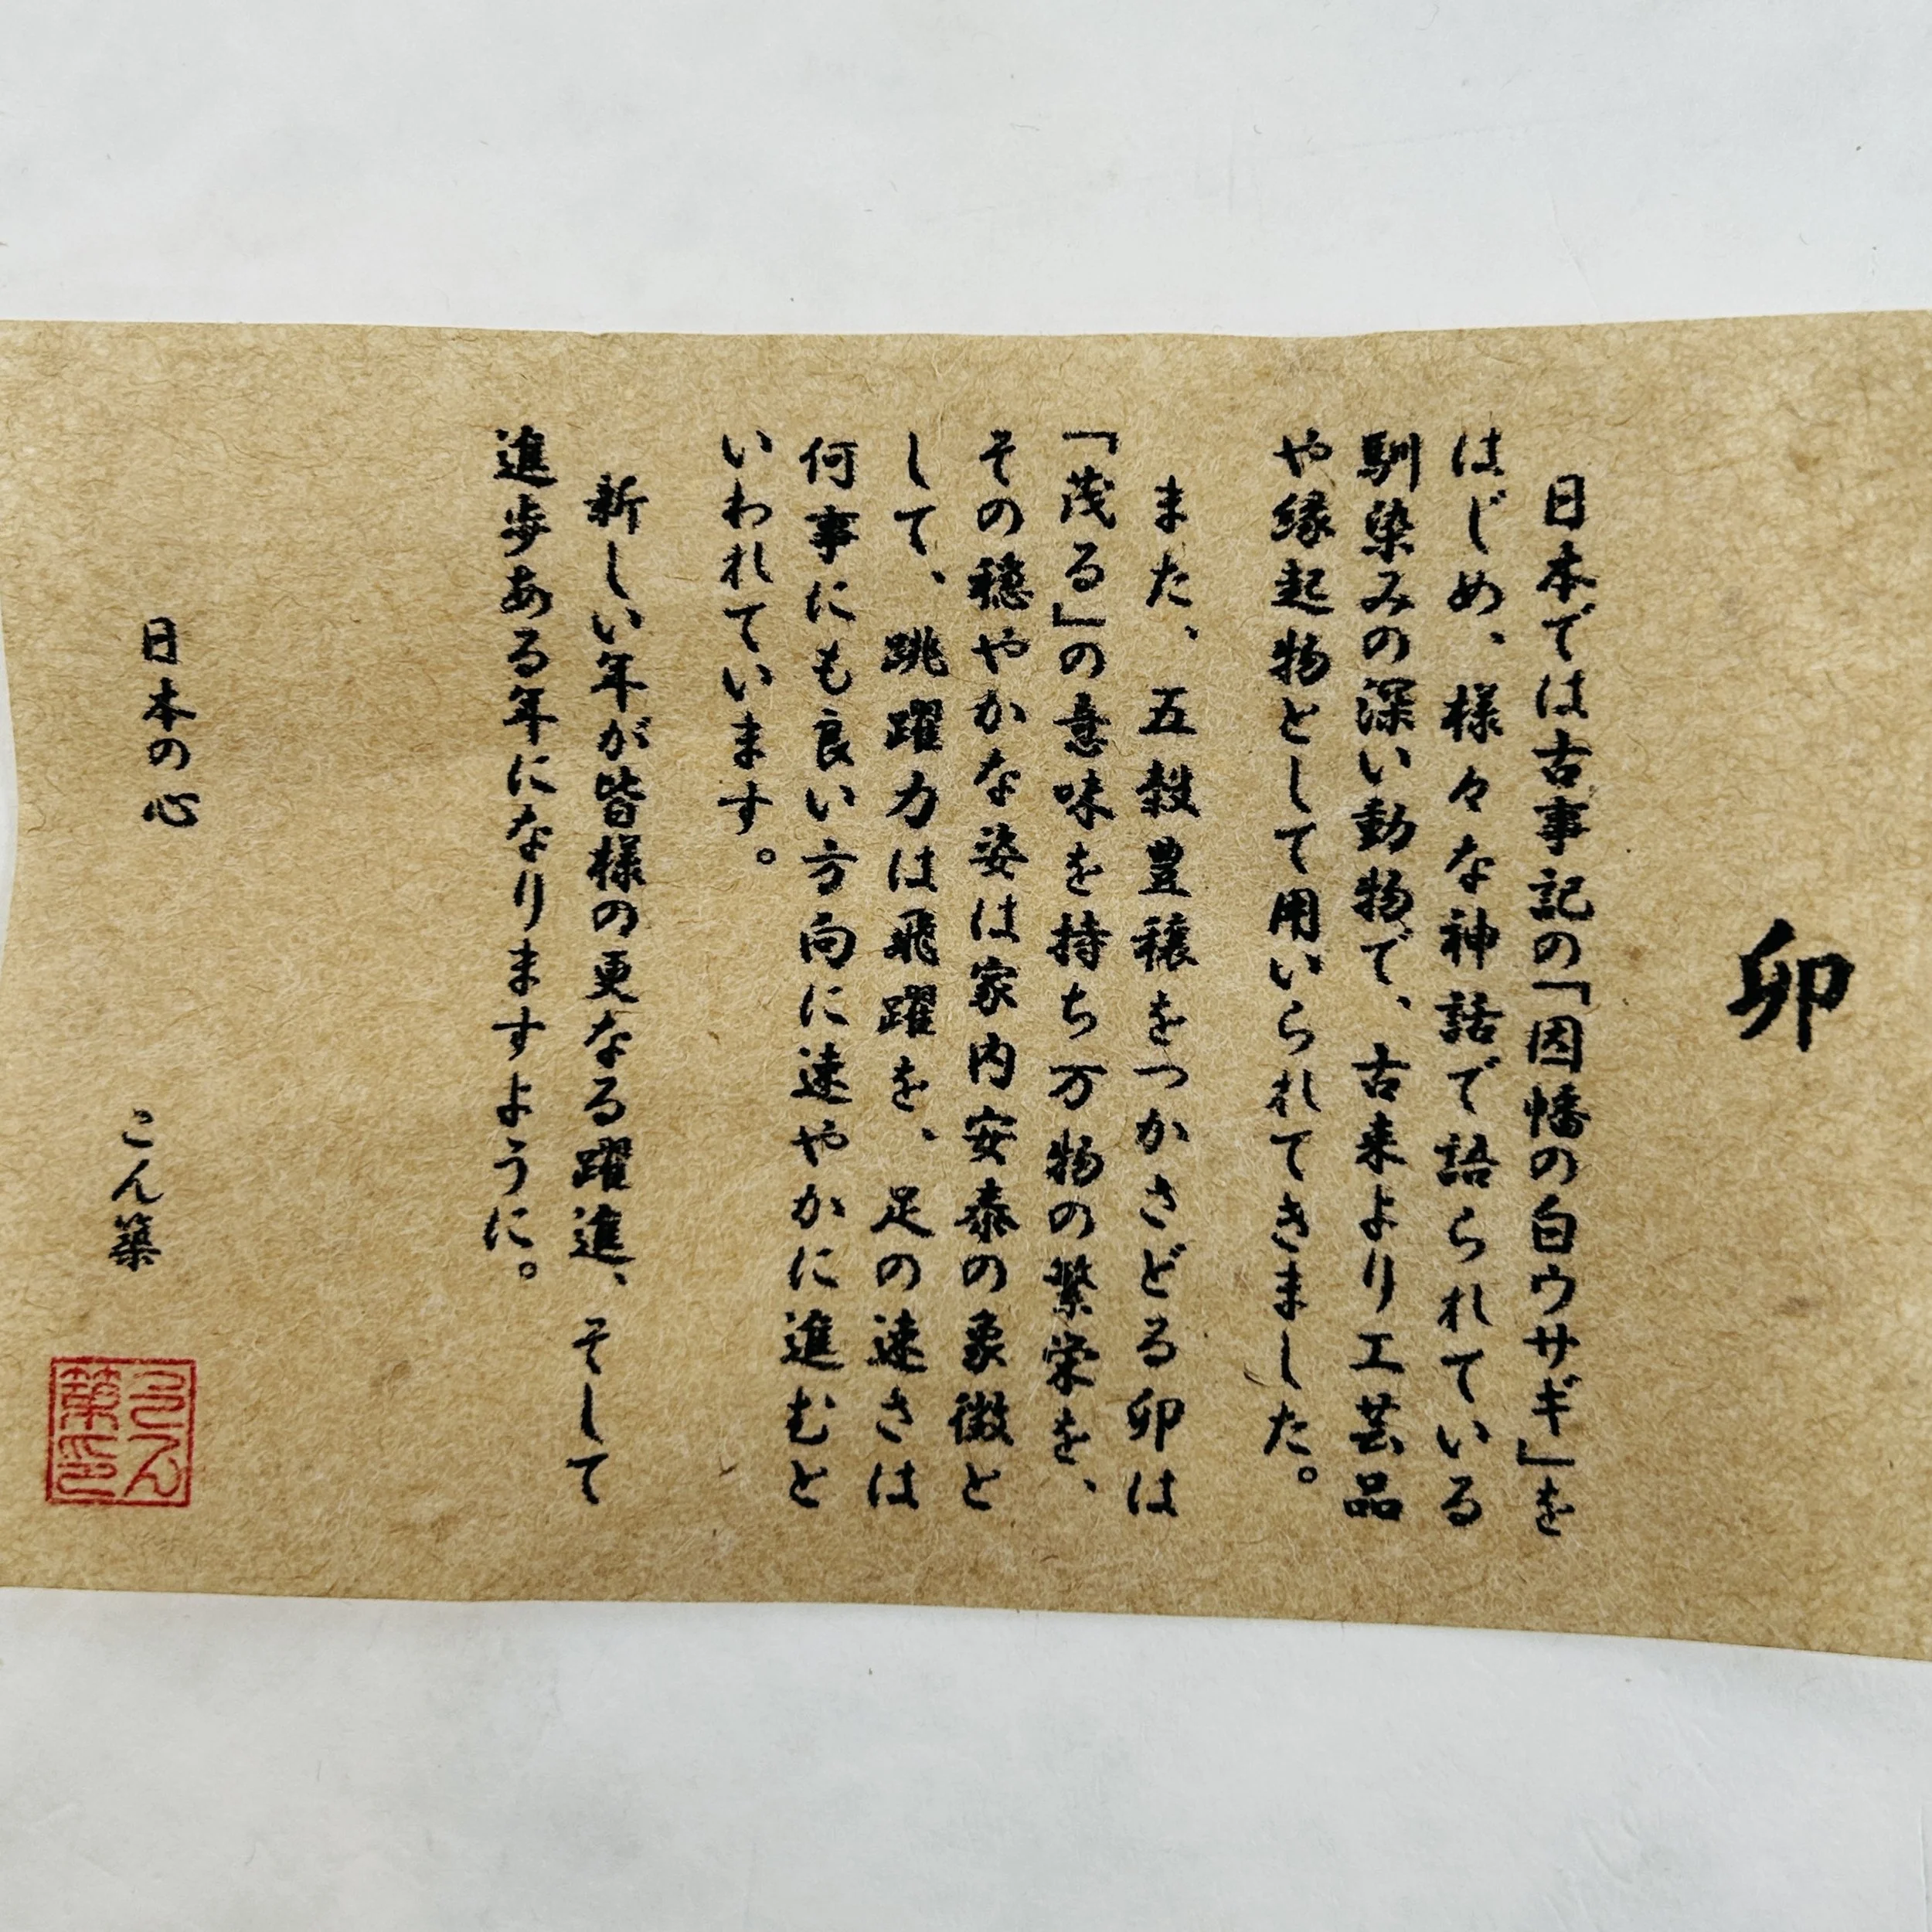 卯
日本では古事記の「因幡の白ウサギ」を
はじめ、様々な神話で語られている
馴染みの深い動物で、古来より工芸品
や縁起物として用いられてきました。
また、五穀豊穣をつかさどる卯は
「茂る」の意味を持ち万物の繁栄を、
その穏やかな姿は家内安泰の象徴と
して、跳躍力は飛躍を、足の速さは
何事にも良い方向に速やかに進むと
いわれています。
新しい年が皆様の更なる躍進、そして
進歩ある年になりますように。
日本の心 こん築